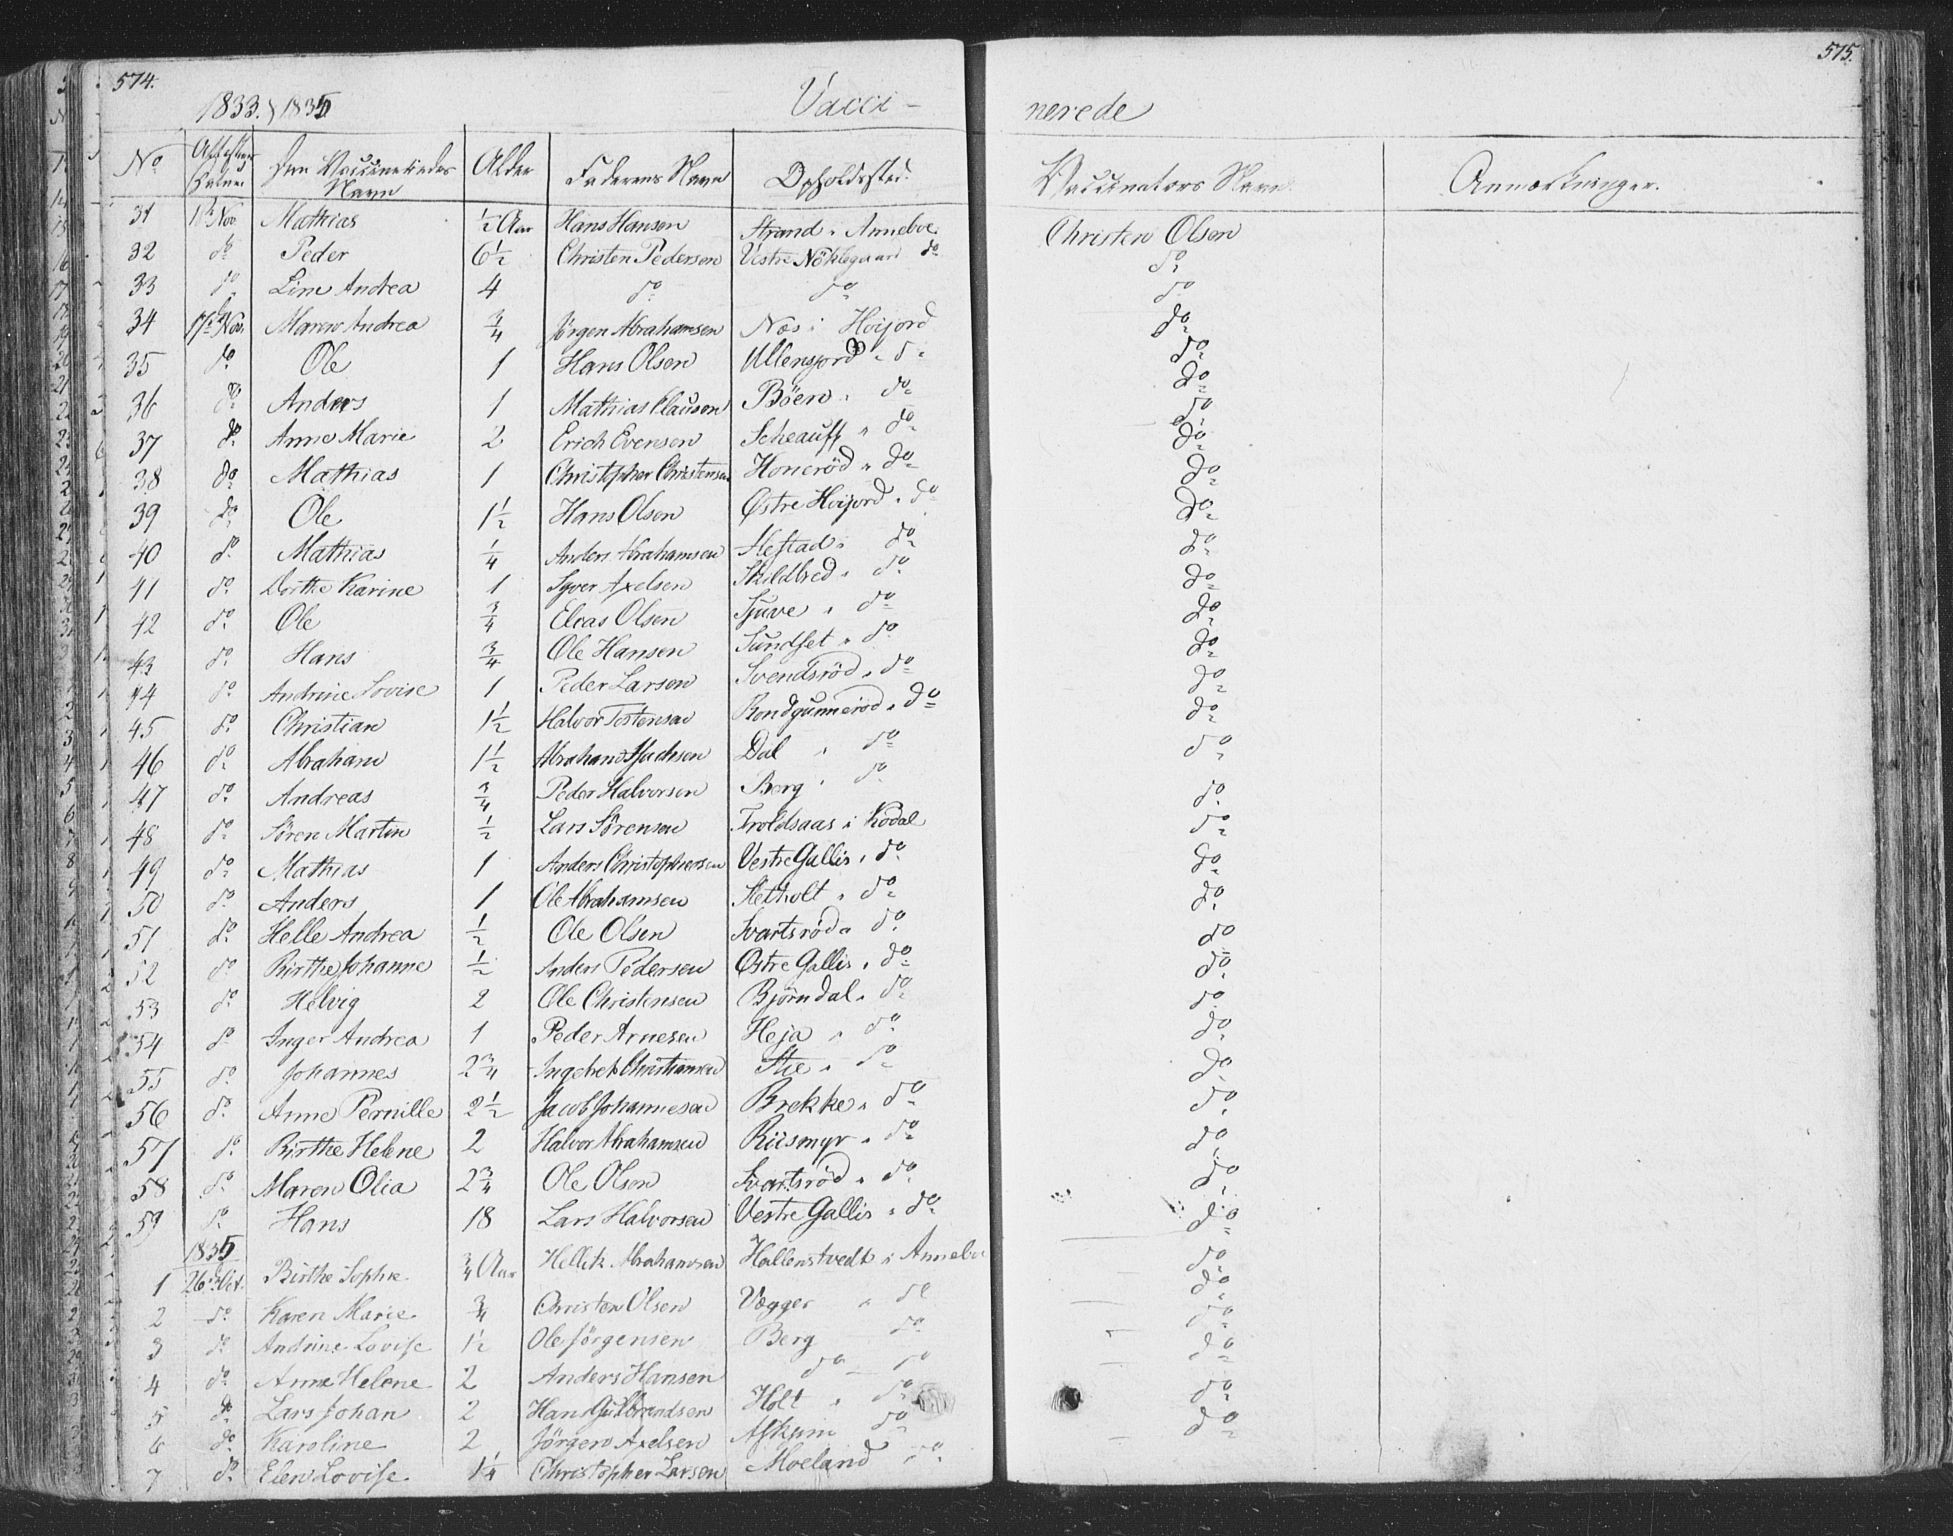 574.
575.
1833. 1835
Vacci-
nerede
No
Attestens Datum
Den Vaccineredes Navn
Alder
Faderens Navn
Opholdssted.
Vaccinators Navn.
Anmærkninger.
31 Nov Mathias ½ Aar Hans Hansen Strand i Anneboe Christen Olsen
32 do Peder 6½ Christen Pedersen Vestre Nøklegaard do do
33 do Line Andrea 4 do do do
34 17de Nov. Maren Andrea ¾ Jørgen Abrahamsen Næs i Höijord do
35 do Ole 1 Hans Olsen do do
36 do Anders 1 Mathias Clausen Böen " do do
37 do Anne Marie 2 Erich Evensen Scheauff " do do
38 do Mathias 1 Christopher Christensen Honeröd " do do
39 do Ole 1½ Hans Olsen Østre Höijord " do do
40 do Mathias ¼ Anders Abrahamsen Hestad " do do
41 do Dorthe Karine 1 Syver Axelsen Skildbred " do do
42 do Ole ¾ Elias Olsen Sjuve " do do
43 do Hans ¾ Ole Hansen Sundset " do do
44 do Andrine Lovise 1 Peder Larsen Svendsröd " do do
45 do Christian 1½ Halvor Tostensen do do
46 do Abraham 1½ Abraham Dal " do do
47 do Andreas ¾ Peder Halvorsen Berg " do do
48 do Sören Martin ½ Lars Sörensen Troldsaas i Kodal do
49 do Mathias 1 Anders Christophersen Vestre Gallis " do do
50 do Anders 1 Ole Abrahamsen Sletholt " do do
51 do Helle Andrea ½ Ole Olsen Svartsröd " do do
52 do Birthe Johanne ½ Anders Pedersen Østre Gallis " do do
53 do Helvig 2 Ole Christensen Björndal " do do
54 do Inger Andrea 1 Peder Arnesen Heja " do do
55 do Johannes 2¾ Ingebret Christiansen Stie " do do
56 do Anne Pernille 2½ Jacob Johannesen Brekke " do do
57 do Birthe Helene 2 Halvor Abrahamsen Riismyr " do do
58 do Maren Olea 2¾ Ole Olsen Svartsröd " do do
59 do Hans 18 Lars Halvorsen Vestre Gallis " do do
1835
1 26de Oct. Birthe Sophie ¾ Aar Hellik Abrahamsen Hallenstvedt i Annebo do
2 do Karen Marie ¾ Christen Olsen Vegger " do do
3 do Andrine Lovise 1½ Ole Jörgensen Berg do do
4 do Anne Helene 2 Anders Hansen do do do
5 do Lars Johan 2 Hans Gulbrandsen Holt " do do
6 do Karoline 2 Jörgen Axelsen Askjum do do
7 do Elen Lovise 1¼ Christopher Larsen Moeland do